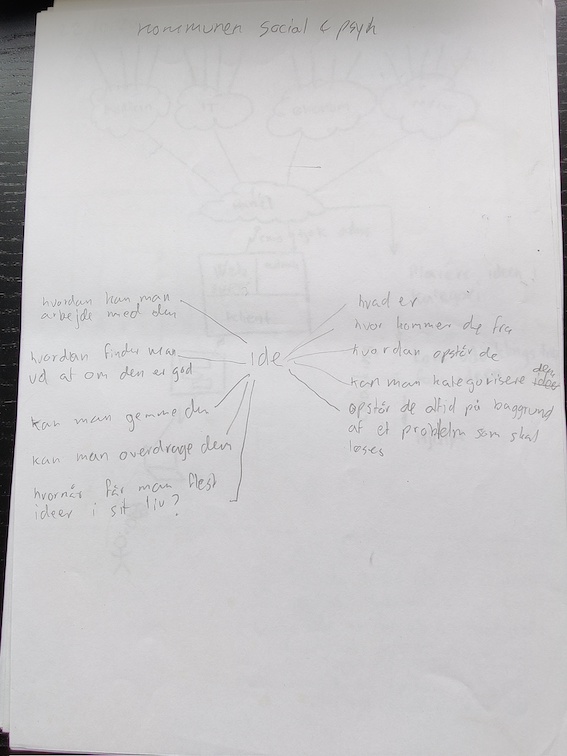 kommunen social & psyk
hvordan kan man
arbejde med den
hvordan finder man
ud at om den er god
kan man gemme den
kan man overdrage den
hvornår får man flest
ideer i sit liv?
ide
hvad er
hvor kommer de fra
hvordan opstår de
kan man kategorisere
opstår de altid på baggrund
af et problem som skal
løses